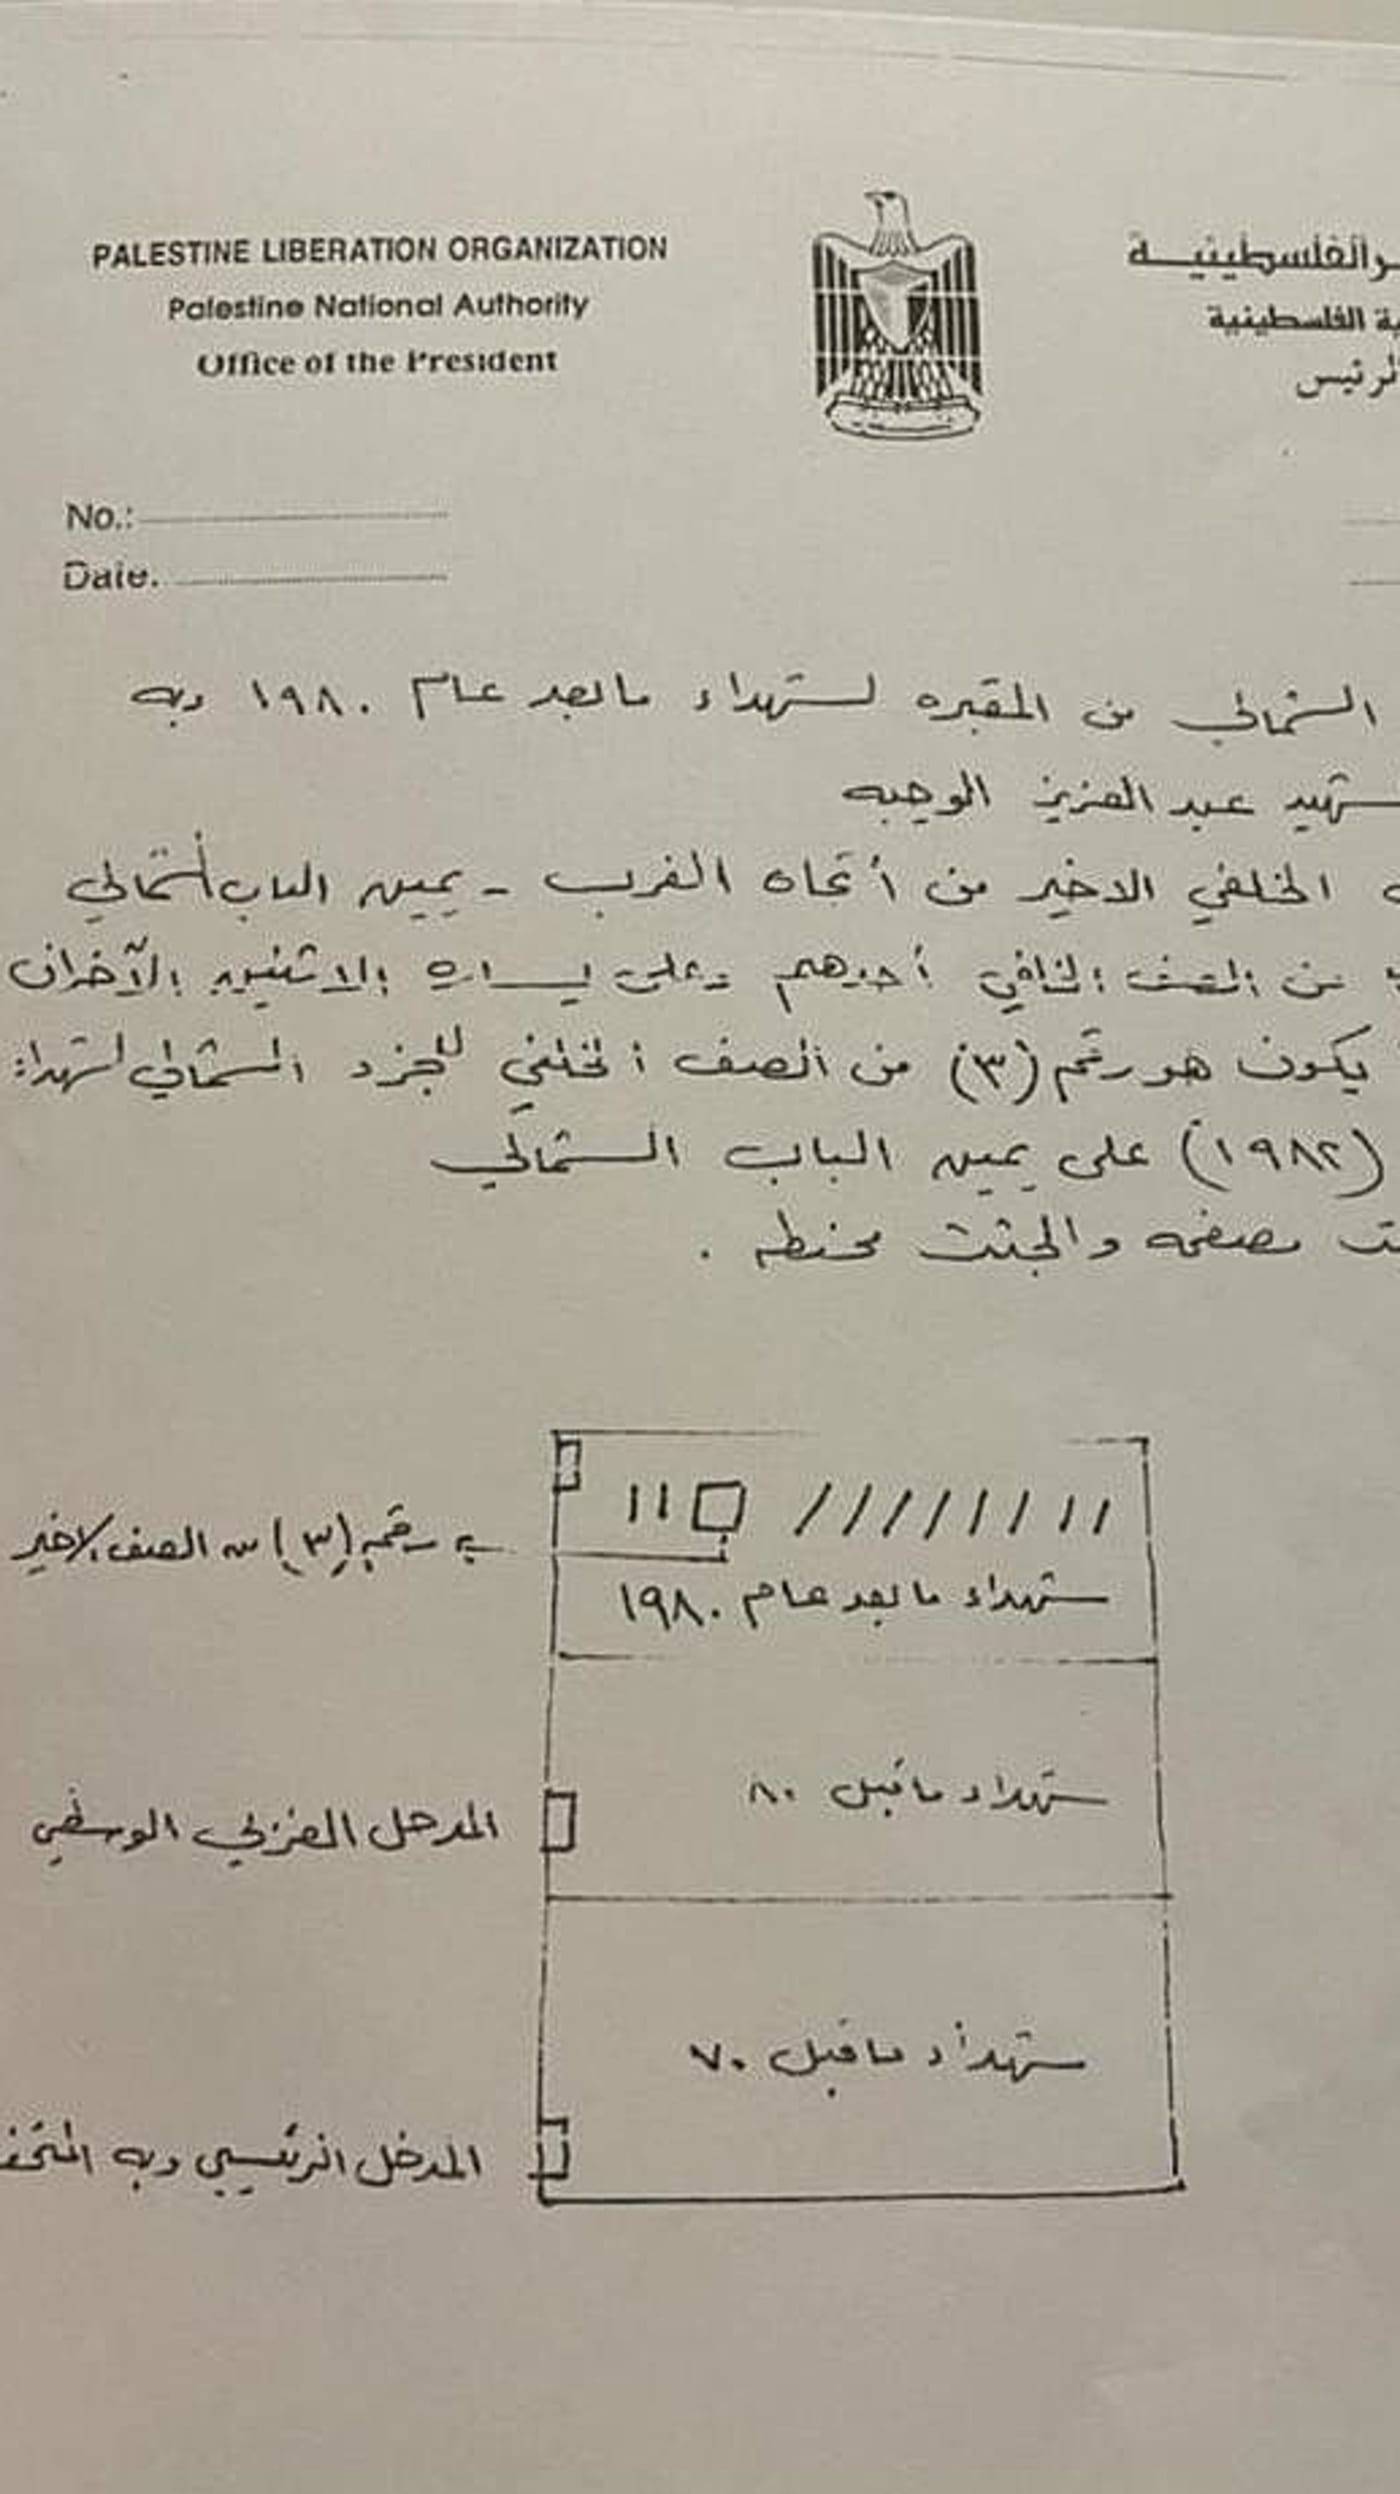 PALESTINE LIBERATION ORGANIZATION
Palestine National Authority
Office of the President
ـر الفلسطينيـــة
ـية الفلسطينية
الرئيس
No.:
Date.
الشمالي من المقبره لشهداء ما بعد عام ١٩٨٠ وبه
شهيد عبد العزيز الوجيه
الخلفي الاخير من أتجاه الغرب - يمين الباب الشمالي
من الصف الخلفي أحدهم وعلى يساره الاثنين الآخران
يكون هو رقم (٣) من الصف الخلفي للجزء الشمالي لشهداء
(١٩٨٢) على يمين الباب الشمالي
مصفحه والجثث محنطه .
رقم (٣) من الصف الاخير
شهداء ما بعد عام ١٩٨٠
شهداء ما قبل ٨٠
المدخل الغربي الوسطي
شهداء ما قبل ٧٠
المدخل الرئيسي وبه المتحف